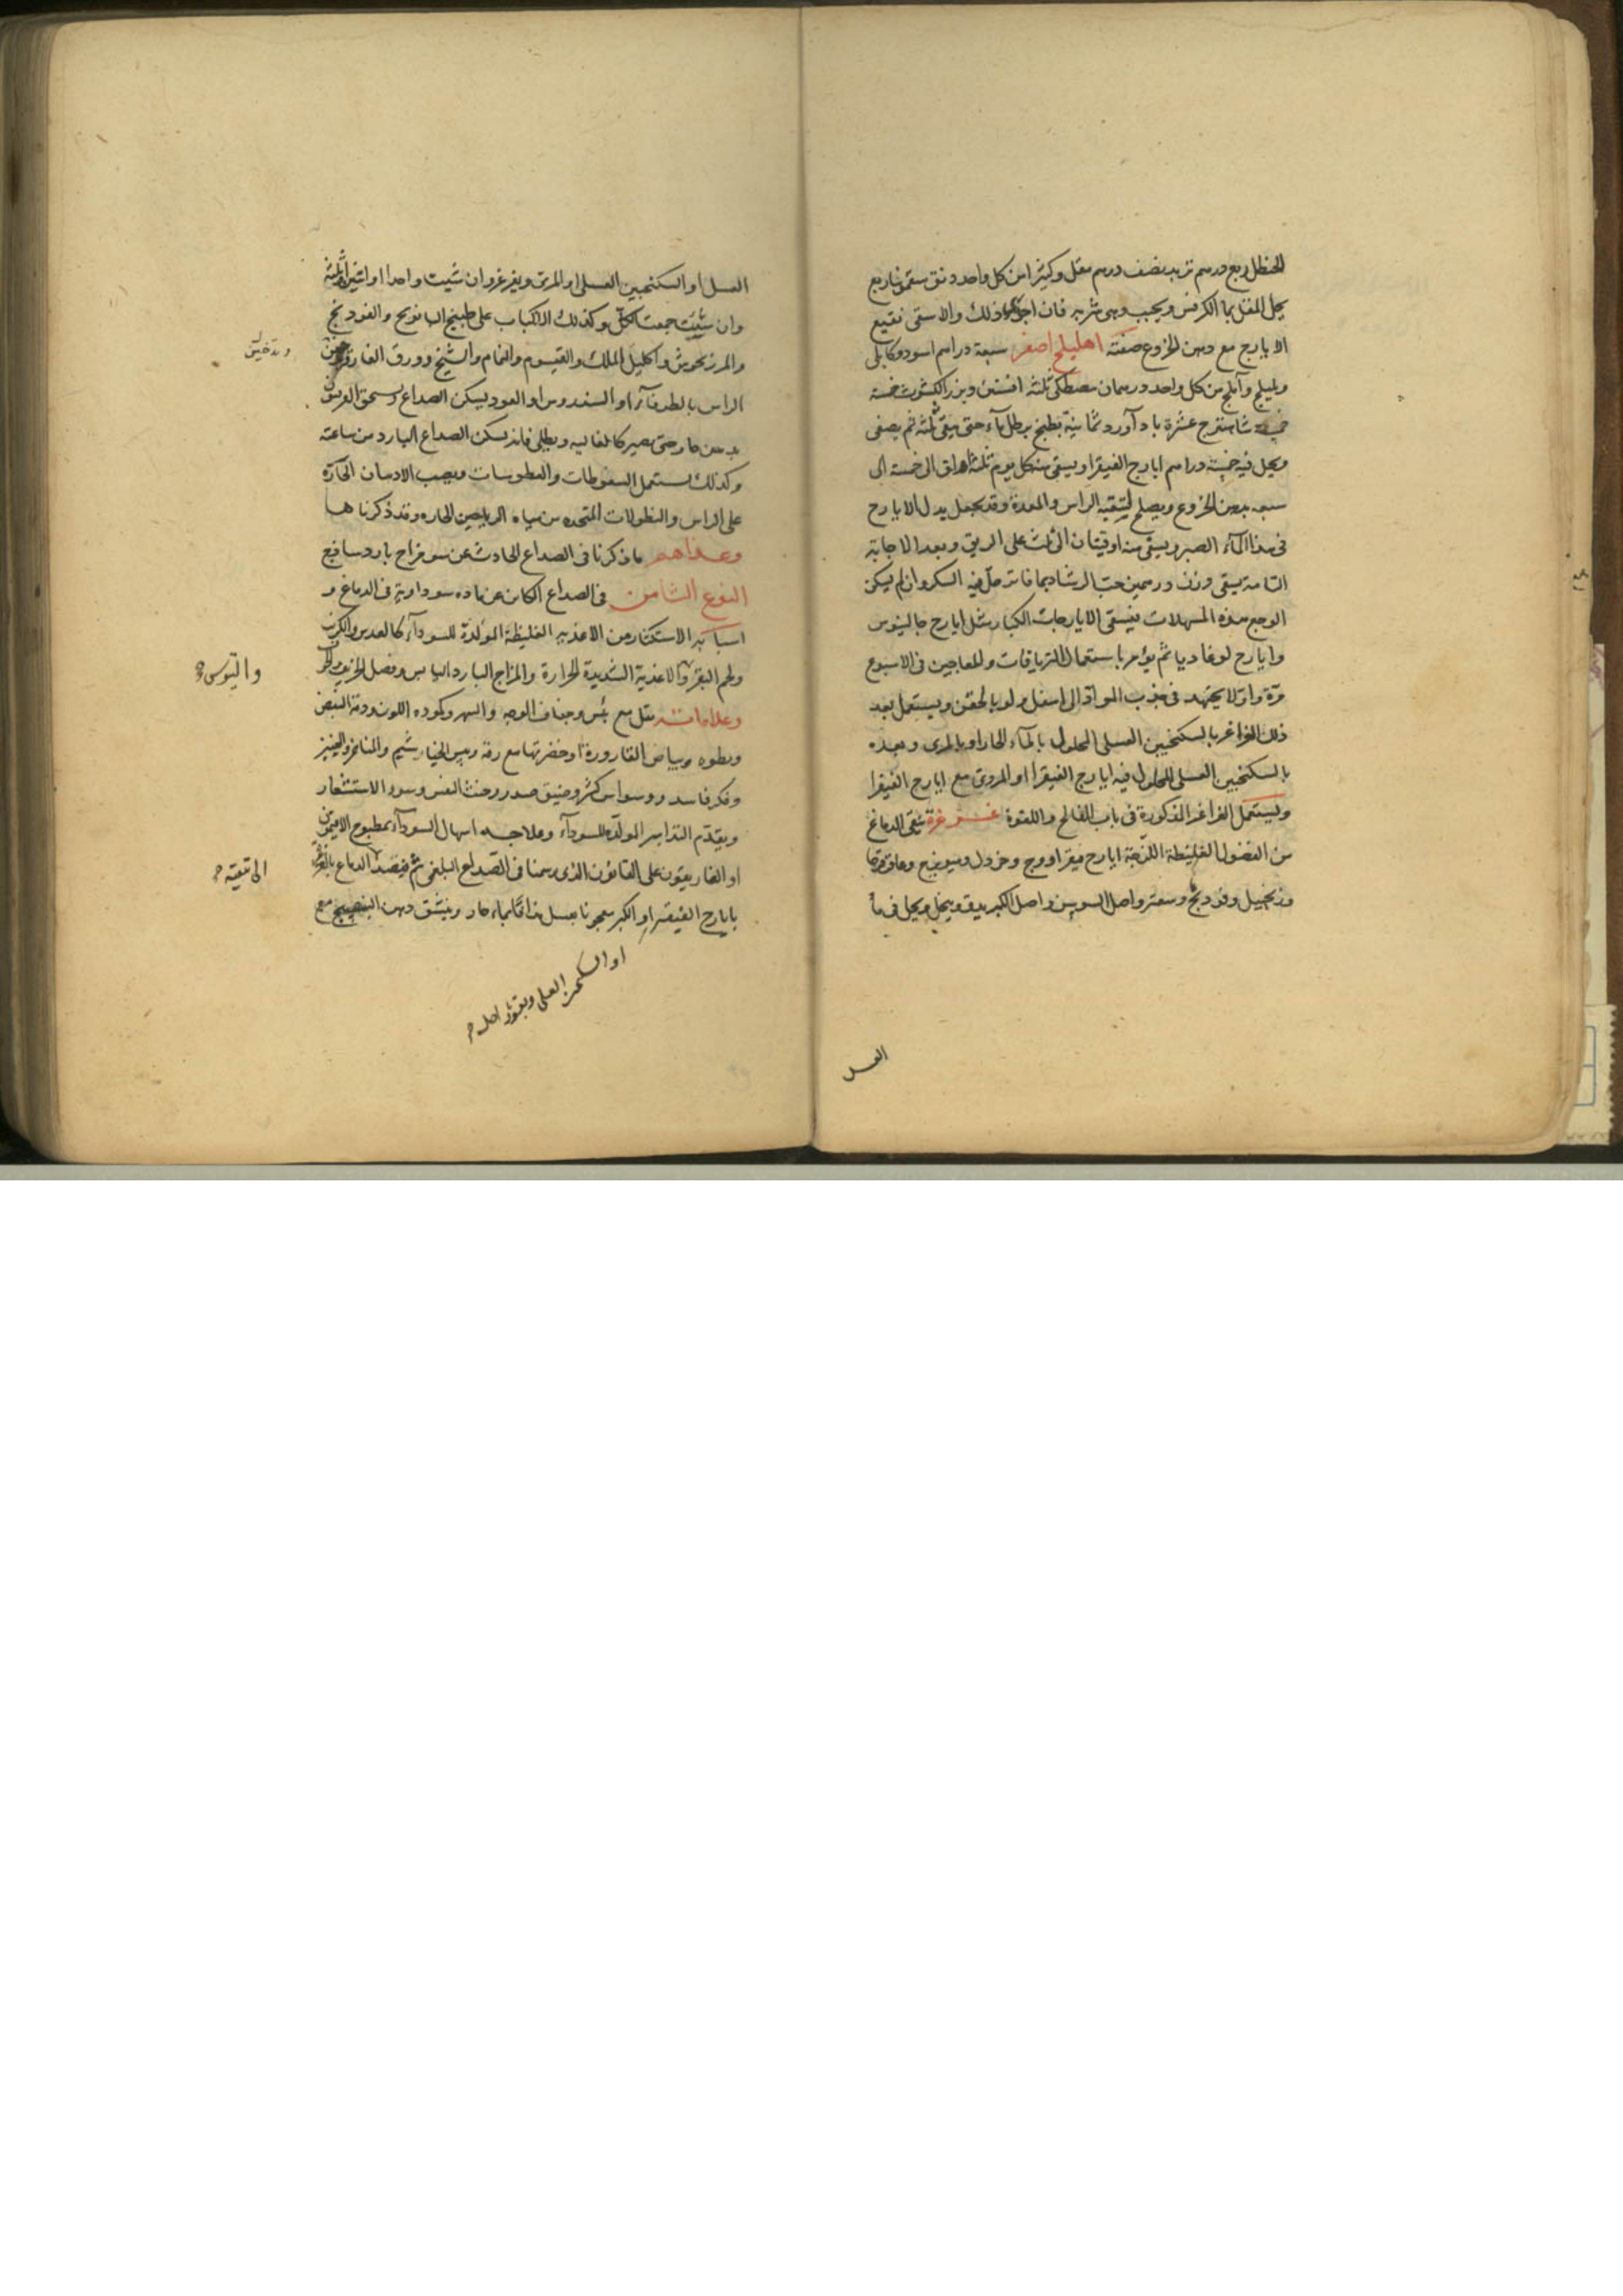 الحنظل ربع درهم تربد نصف درهم مقل وكثيرا من كل واحد دانق سقمونيا ربع
يحل المقل بماء الكرفس ويحبب وهى شربه فان ذلك والا سقى نقيع
الايارج مع دهن الخروع صفته اهليلج اصفر سبعة دراهم اسود وكابلى
وبليلج وآملج من كل واحد درهمان مصطكى ثلثة افسنتين وبزر الكشوث خمسة
شاهترج عشرة باد آورد ثمانية يطبخ برطل ماء حتى يبقى ثلثه ثم يصفى
ويحل فيه خمسة دراهم ايارج الفيقرا ويسقى منه كل يوم ثلثة اواق الى خمسة الى
سبعه بدهن الخروع ويصلح لتنقيه الراس والمعدة وقد يجعل بدل الايارج
فى هذا المآء الصبر ويسقى منه اوقيتان الى ثلث على الريق وبعد الاجابة
التامة يسقى وزن درهمين حب الرشاد بماء فاتر حل فيه السكر وان لم يسكن
الوجع بهذه المسهلات فيسقى الايارجات الكبار مثل ايارج جالينوس
وايارج لوغاديا ثم يؤمر باستعمال الترياقات والمعاجين فى الاسبوع
مرة واولا يجتهد فى جذب المواد الى اسفل ولو بالحقن ويستعمل بعد
ذلك الغراغر بالسكنجبين العسلى المحلول بالمآء الحار او بالمرى وبعده
بالسكنجبين العسلى المحلول فيه ايارج الفيقرا او المرى مع ايارج الفيقرا
ويستعمل الغراغر المذكورة فى باب الفالج واللقوة غرغرة ينقى الدماغ
من الفضول الغليظة اللزجة ايارج فيقرا ووج وخردل وميويزج وعاقرقرحا
وزنجبيل وفودنج وسعتر واصل السوسن واصل الكبر يدق وينخل ويحل فى ماء
العسل
العسل او السكنجبين العسلى او المرى ويغرغر وان شيت واحدا او اثنين او ثلثة
وان شيت جمعت الكل وكذلك الاكباب على طبيخ البابونج والفودنج
والمرزنجوش واكليل الملك والقيسوم والنمام والشيح وورق الغار
وتدخين
الراس بالطرفآء او السندروس او العود يسكن الصداع ويسحق الفربيون
بدهن حار حتى يصير كالغاليه ويطلى فانه يسكن الصداع البارد من ساعته
وكذلك يستعمل السعوطات والعطوسات ويصب الادهان الحارة
على الراس والنطولات المتخذه من مياه الرياحين الحاره وقد ذكرناها
ما ذكرنا فى الصداع الحادث عن سو مزاج بارد ساذج
النوع الثامن فى الصداع الكاين عن ماده سوداوية فى الدماغ و
اسبابه الاستكثار من الاغذيه الغليظة المولدة للسودآء كالعدس والكرنب
ولحم البقر والاغذية الشديدة الحرارة والمزاج البارد اليابس وفصل الخريف
والتيوس
وعلاماته ثقل مع يبس وجفاف الوجه والسهر وكوده اللون ودقة النبض
وبطوه وبياض القارورة او خضرتها مع رقة ويبس الخياشيم والمناخر
وفكر فاسد ووسواس كثير وضيق صدر وخبث النفس وسوء الاستشعار
ويقدم التدابير المولدة للسودآء وعلاجه اسهال السودآء بمطبوخ الافتيمون
او الغاريقون على القانون الذى رسمنا فى الصداع البلغمى ثم فيقصد الدماغ
الى تنقيه
بايارج الفيقرا او الكبر معجونا بعسل مذاقا بماء حار وينشق دهن البنفسج مع
او السكنجبين العسلى